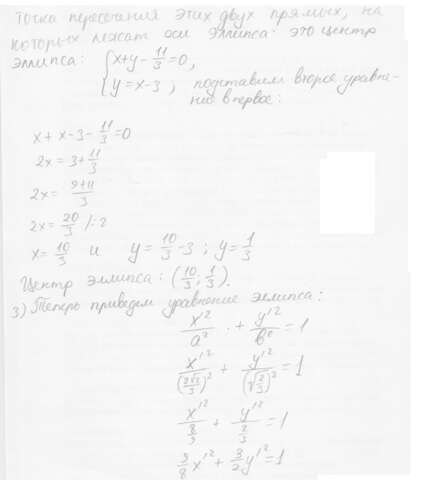 Точка пересечения этих двух прямых, на
которых лежат оси эллипса: это центр
эллипса: { x+y-11/3=0,
{ y=x-3 ; подставим второе уравне-
ние в первое:
x + x-3-11/3=0
2x = 3+11/3
2x = (9+11)/3
2x = 20/3 /:2
x = 10/3 и y = 10/3 -3 ; y = 1/3
Центр эллипса: (10/3; 1/3).
3) Теперь приведем уравнение эллипса:
x'²/a² + y'²/b² = 1
x'²/(2√2/3)² + y'²/(√2/3)² = 1
x'²/(8/3) + y'²/(2/3) = 1
3/8 x'² + 3/2 y'² = 1